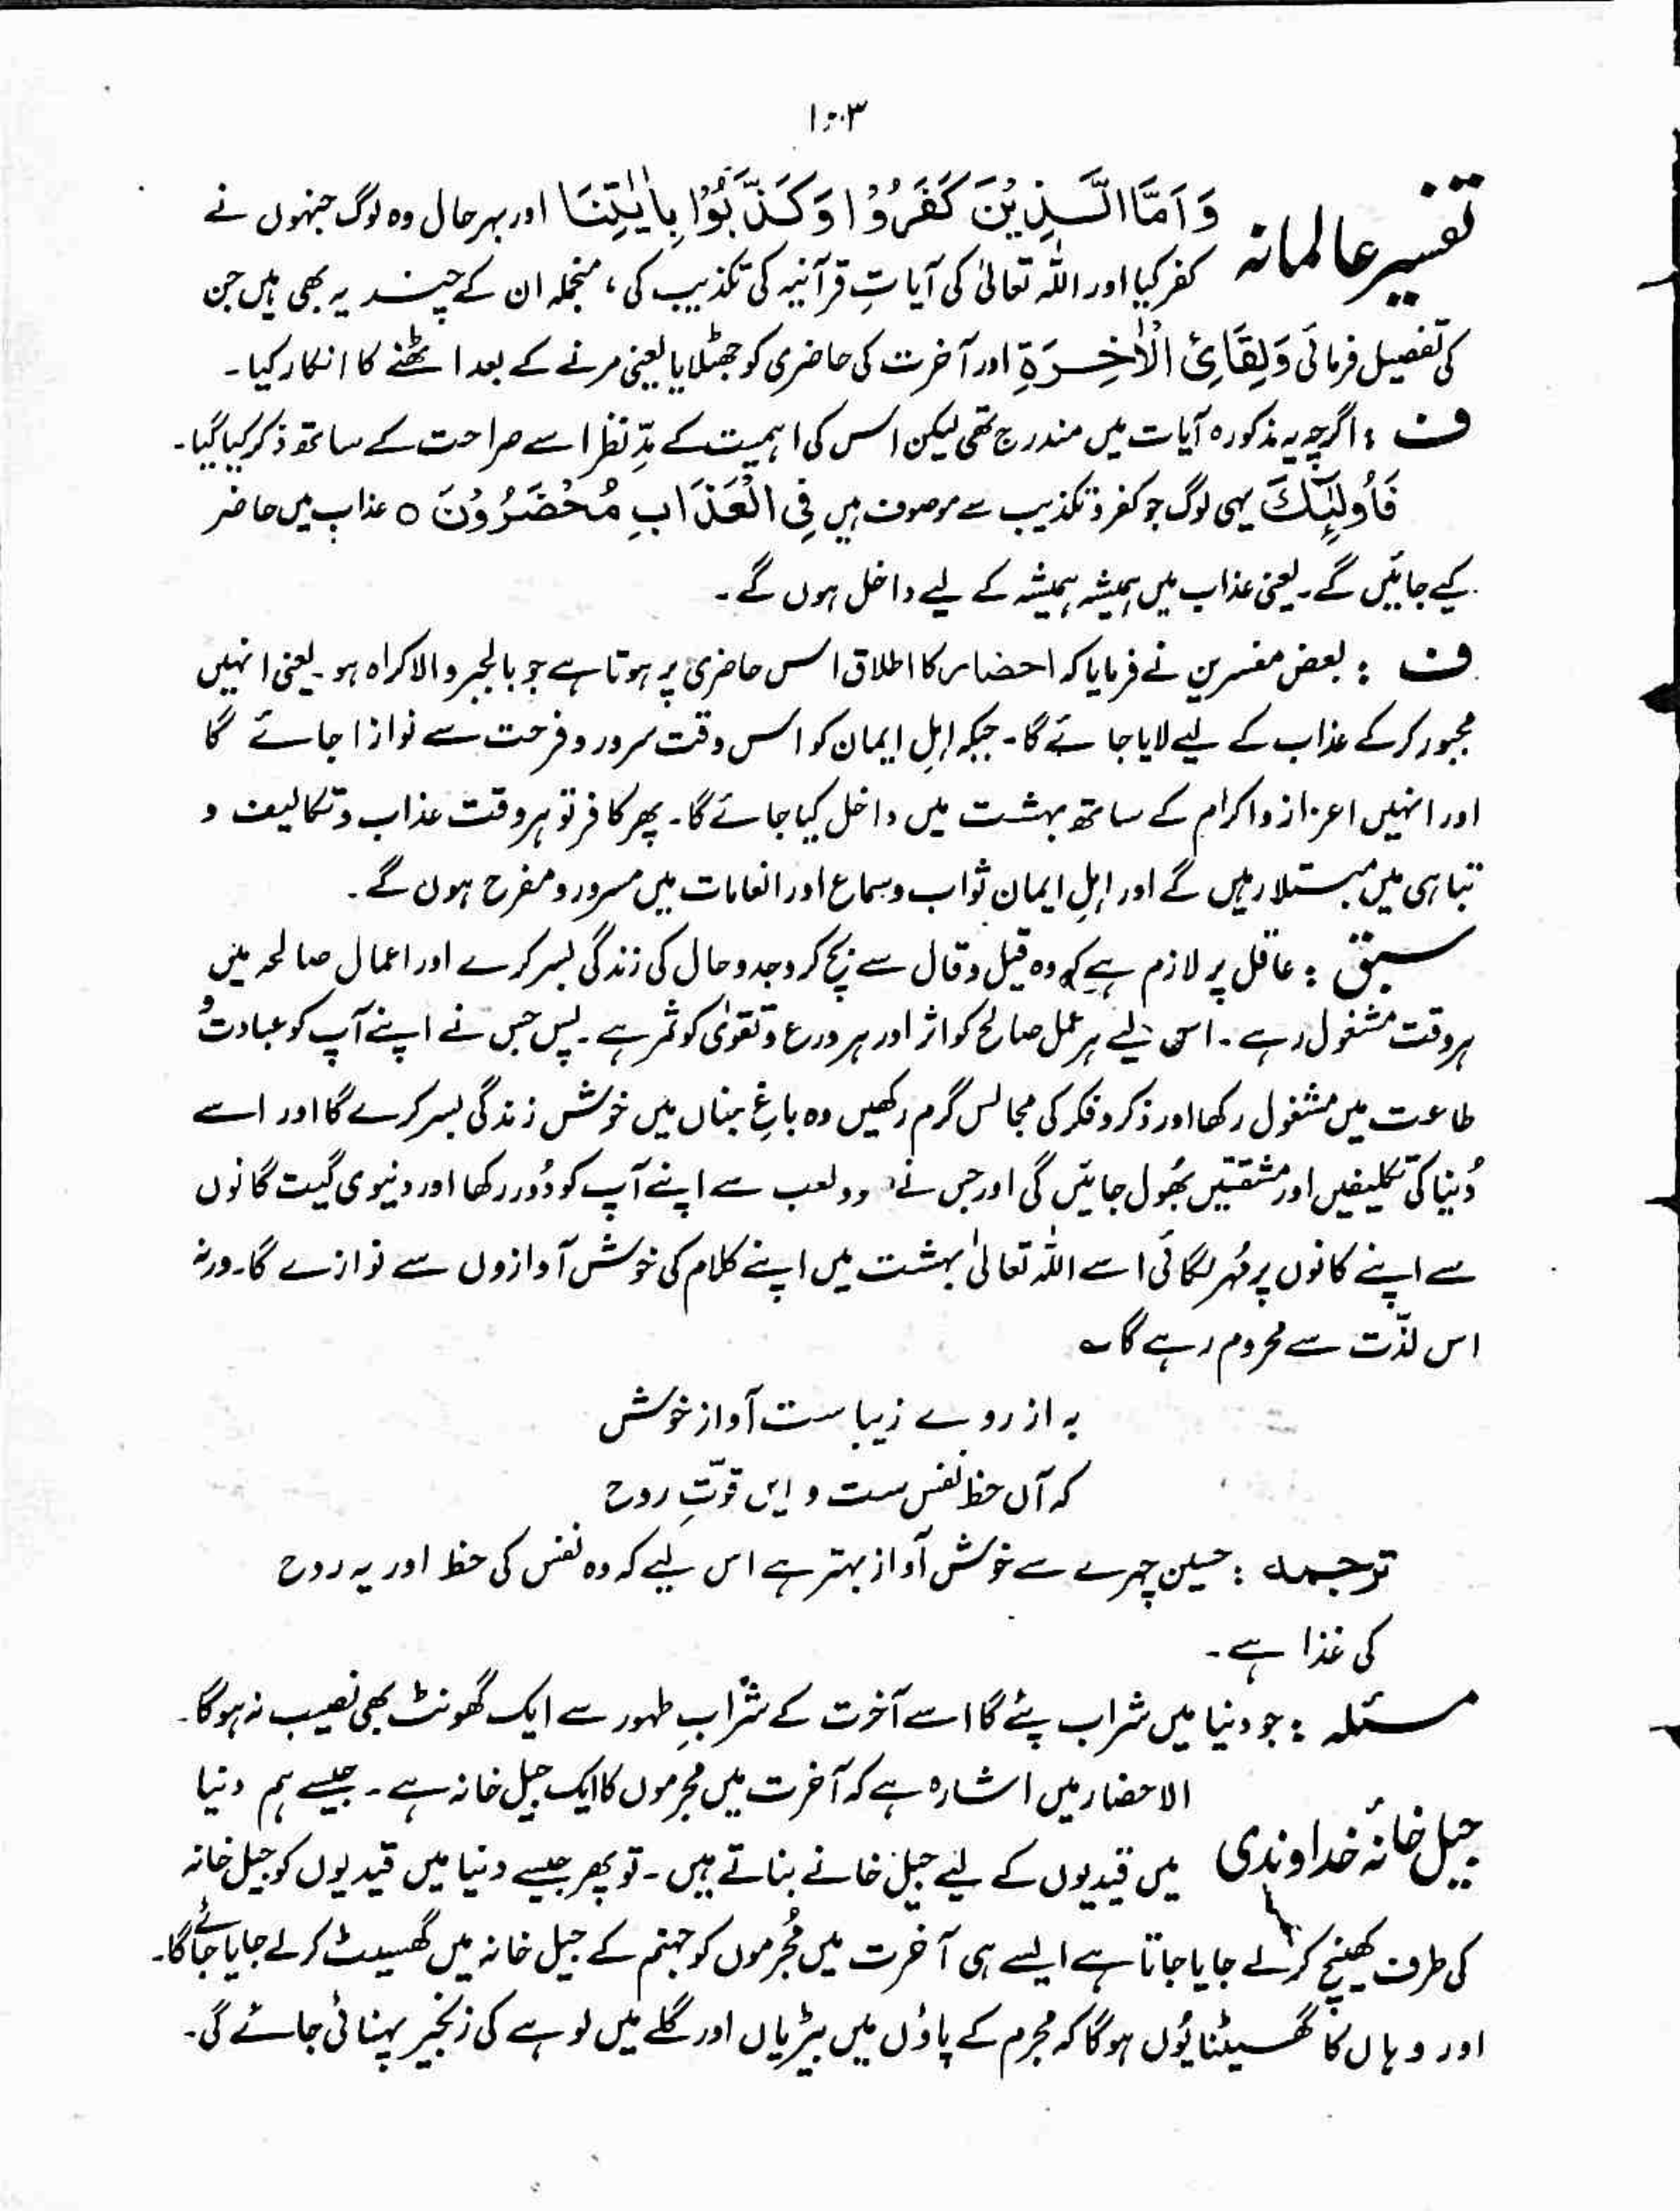 ۱۰۳
تفسیر عالمانہ وَاَمَّا الَّذِیْنَ کَفَرُوْا وَکَذَّبُوْا بِاٰیٰتِنَا اور بہرحال وہ لوگ جنہوں نے
کفر کیا اور اللہ تعالیٰ کی آیاتِ قرآنیہ کی تکذیب کی، منجملہ ان کے چند یہ بھی ہیں جن
کی تفصیل فرمائی وَلِقَآئِ الْاٰخِرَۃِ اور آخرت کی حاضری کو جھٹلایا یعنی مرنے کے بعد اٹھنے کا انکار کیا۔
ف : اگرچہ یہ مذکورہ آیات میں مندرج تھی لیکن اس کی اہمیت کے مدِّنظر اسے صراحت کے ساتھ ذکر کیا گیا۔
فَاُولٰٓئِکَ یہی لوگ جو کفر و تکذیب سے موصوف ہیں فِی الْعَذَابِ مُحْضَرُوْنَ ○ عذاب میں حاضر
کیے جائیں گے۔ یعنی عذاب میں ہمیشہ ہمیشہ کے لیے داخل ہوں گے۔
ف : بعض مفسرین نے فرمایا کہ احضار کا اطلاق اس حاضری پر ہوتا ہے جو بالجبر والاکراہ ہو۔ یعنی انہیں
مجبور کرکے عذاب کے لیے لایا جائے گا۔ جبکہ اہلِ ایمان کو اس وقت سرور و فرحت سے نوازا جائے گا
اور انہیں اعزاز و اکرام کے ساتھ بہشت میں داخل کیا جائے گا۔ پھر کافر تو ہر وقت عذاب و تکالیف و
تباہی میں مبتلا رہیں گے اور اہلِ ایمان ثواب و سماع اور انعامات میں مسرور و مفرح ہوں گے۔
سبق : عاقل پر لازم ہے کہ وہ قیل و قال سے بچ کر وجد و حال کی زندگی بسر کرے اور اعمال صالحہ میں
ہر وقت مشغول رہے۔ اس لیے ہر عمل صالح کو اثر اور ہر ورع و تقوٰی کو ثمر ہے۔ پس جس نے اپنے آپ کو عبادت و
طاعت میں مشغول رکھا اور ذکر و فکر کی مجالس گرم رکھیں وہ باغِ جناں میں خوش زندگی بسر کرے گا اور اسے
دُنیا کی تکلیفیں اور مشقتیں بھُول جائیں گی اور جس نے و لعب سے اپنے آپ کو دُور رکھا اور دنیوی گیت گانوں
سے اپنے کانوں پر مُہر لگائی اسے اللہ تعالیٰ بہشت میں اپنے کلام کی خوش آوازوں سے نوازے گا۔ ورنہ
اس لذّت سے محروم رہے گا ؎
بہ از روے زیباست آواز خوش
کہ آں حظ نفس ست و ایں قوّتِ روح
ترجمہ : حسین چہرے سے خوش آواز بہتر ہے اس لیے کہ وہ نفس کی حظ اور یہ روح
کی غذا ہے۔
مسئلہ : جو دنیا میں شراب پئے گا اسے آخرت کے شرابِ طہور سے ایک گھونٹ بھی نصیب نہ ہوگا۔
الاحضار میں اشارہ ہے کہ آخرت میں مجرموں کا ایک جیل خانہ ہے۔ جیسے ہم دنیا
جیل خانۂ خداوندی میں قیدیوں کے لیے جیل خانے بناتے ہیں۔ تو پھر جیسے دنیا میں قیدیوں کو جیل خانہ
کی طرف کھینچ کر لے جایا جاتا ہے ایسے ہی آخرت میں مُجرموں کو جہنم کے جیل خانہ میں گھسیٹ کر لے جایا جائے گا۔
اور وہاں کا گھسیٹنا یُوں ہوگا کہ مجرم کے پاؤں میں بیڑیاں اور گلے میں لوہے کی زنجیر پہنائی جائے گی۔